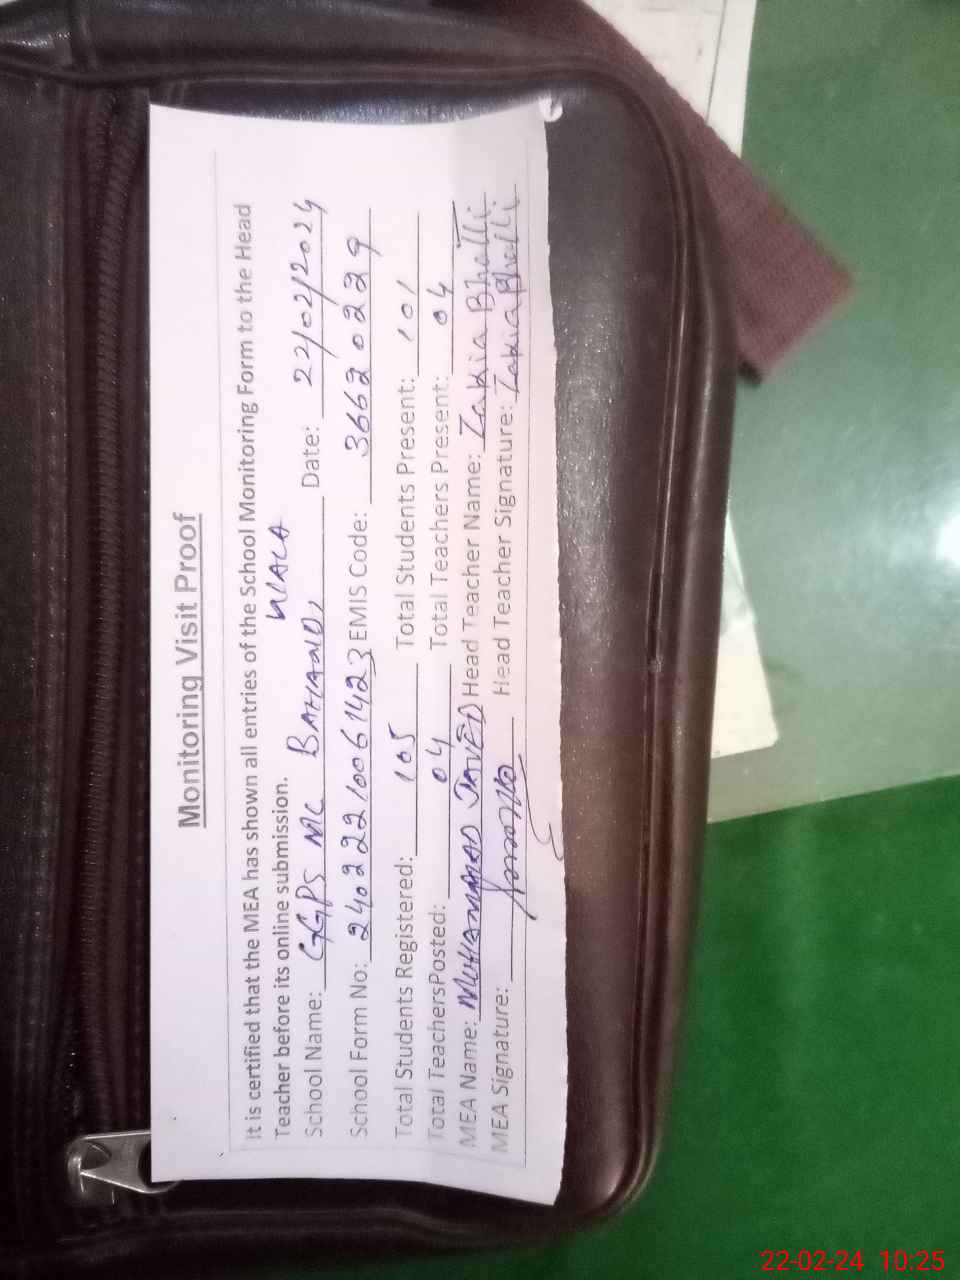 Monitoring Visit Proof
It is certified that the MEA has shown all entries of the School Monitoring Form to the Head
Teacher before its online submission.
School Name: GGPS MC BAHAAID, WALA Date: 22/02/2024
School Form No: 24022210061423 EMIS Code: 36620229
Total Students Registered: 105 Total Students Present: 101
Total TeachersPosted: 04 Total Teachers Present: 04
MEA Name: MUHAMMAD JAVED Head Teacher Name: Zakia Bhatti
MEA Signature: Head Teacher Signature: Zakia Bhatti
22-02-24 10:25